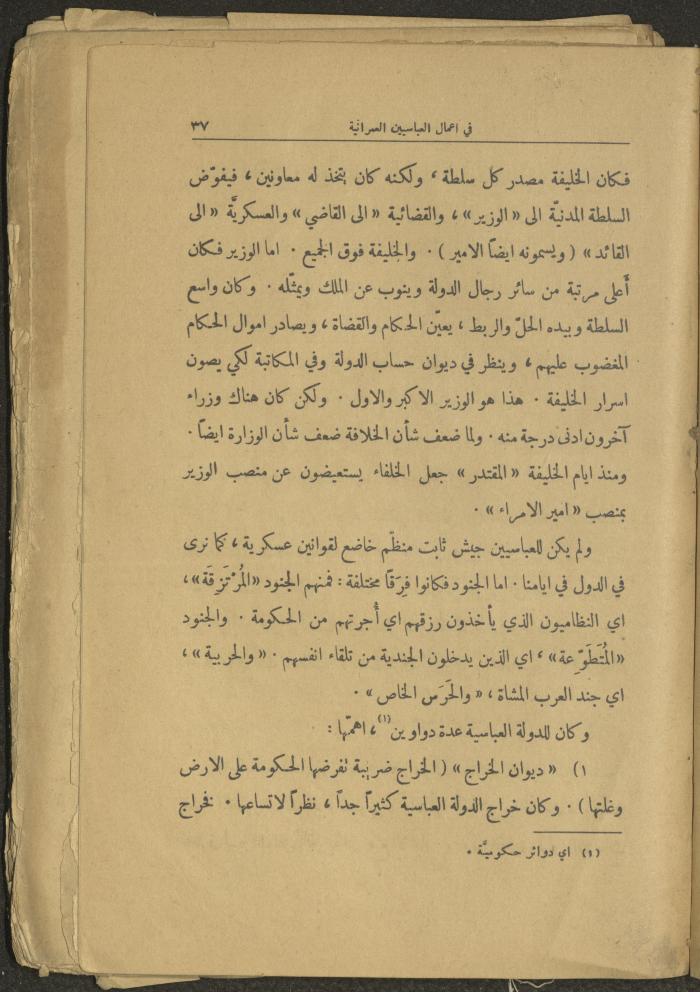 في اعمال العباسيين العمرانية ٣٧
فكان الخليفة مصدر كل سلطة ، ولكنه كان يتخذ له معاونين ، فيفوّض
السلطة المدنيّة الى « الوزير » ، والقضائية « الى القاضي » والعسكريَّة « الى
القائد » ( ويسمونه ايضاً الامير ) . والخليفة فوق الجميع . اما الوزير فكان
أعلى مرتبة من سائر رجال الدولة وينوب عن الملك ويمثّله . وكان واسع
السلطة وبيده الحلّ والربط ، يعيّن الحكام والقضاة ، ويصادر اموال الحكام
المغضوب عليهم ، وينظر في ديوان حساب الدولة وفي المكاتبة لكي يصون
اسرار الخليفة . هذا هو الوزير الاكبر والاول . ولكن كان هناك وزراء
آخرون ادنى درجة منه . ولما ضعف شأن الخلافة ضعف شأن الوزارة ايضاً .
ومنذ ايام الخليفة « المقتدر » جعل الخلفاء يستعيضون عن منصب الوزير
بمنصب « امير الامراء » .
ولم يكن للعباسيين جيش ثابت منظّم خاضع لقوانين عسكرية ، كما نرى
في الدول في ايامنا . اما الجنود فكانوا فِرَقاً مختلفة : فمنهم الجنود «المُرْتَزِقَة» ،
اي النظاميون الذي يأخذون رزقهم اي أُجرتهم من الحكومة . والجنود
«المُتَطَوِّعة» ، اي الذين يدخلون الجندية من تلقاء انفسهم . « والحربية » ،
اي جند العرب المشاة ، « والحَرَس الخاص » .
وكان للدولة العباسية عدة دواوين(١) ، اهمّها :
١) « ديوان الخراج » ( الخراج ضريبة تفرضها الحكومة على الارض
وغلتها ) . وكان خراج الدولة العباسية كثيراً جداً ، نظراً لاتساعها . فخراج
(١) اي دوائر حكوميَّة .